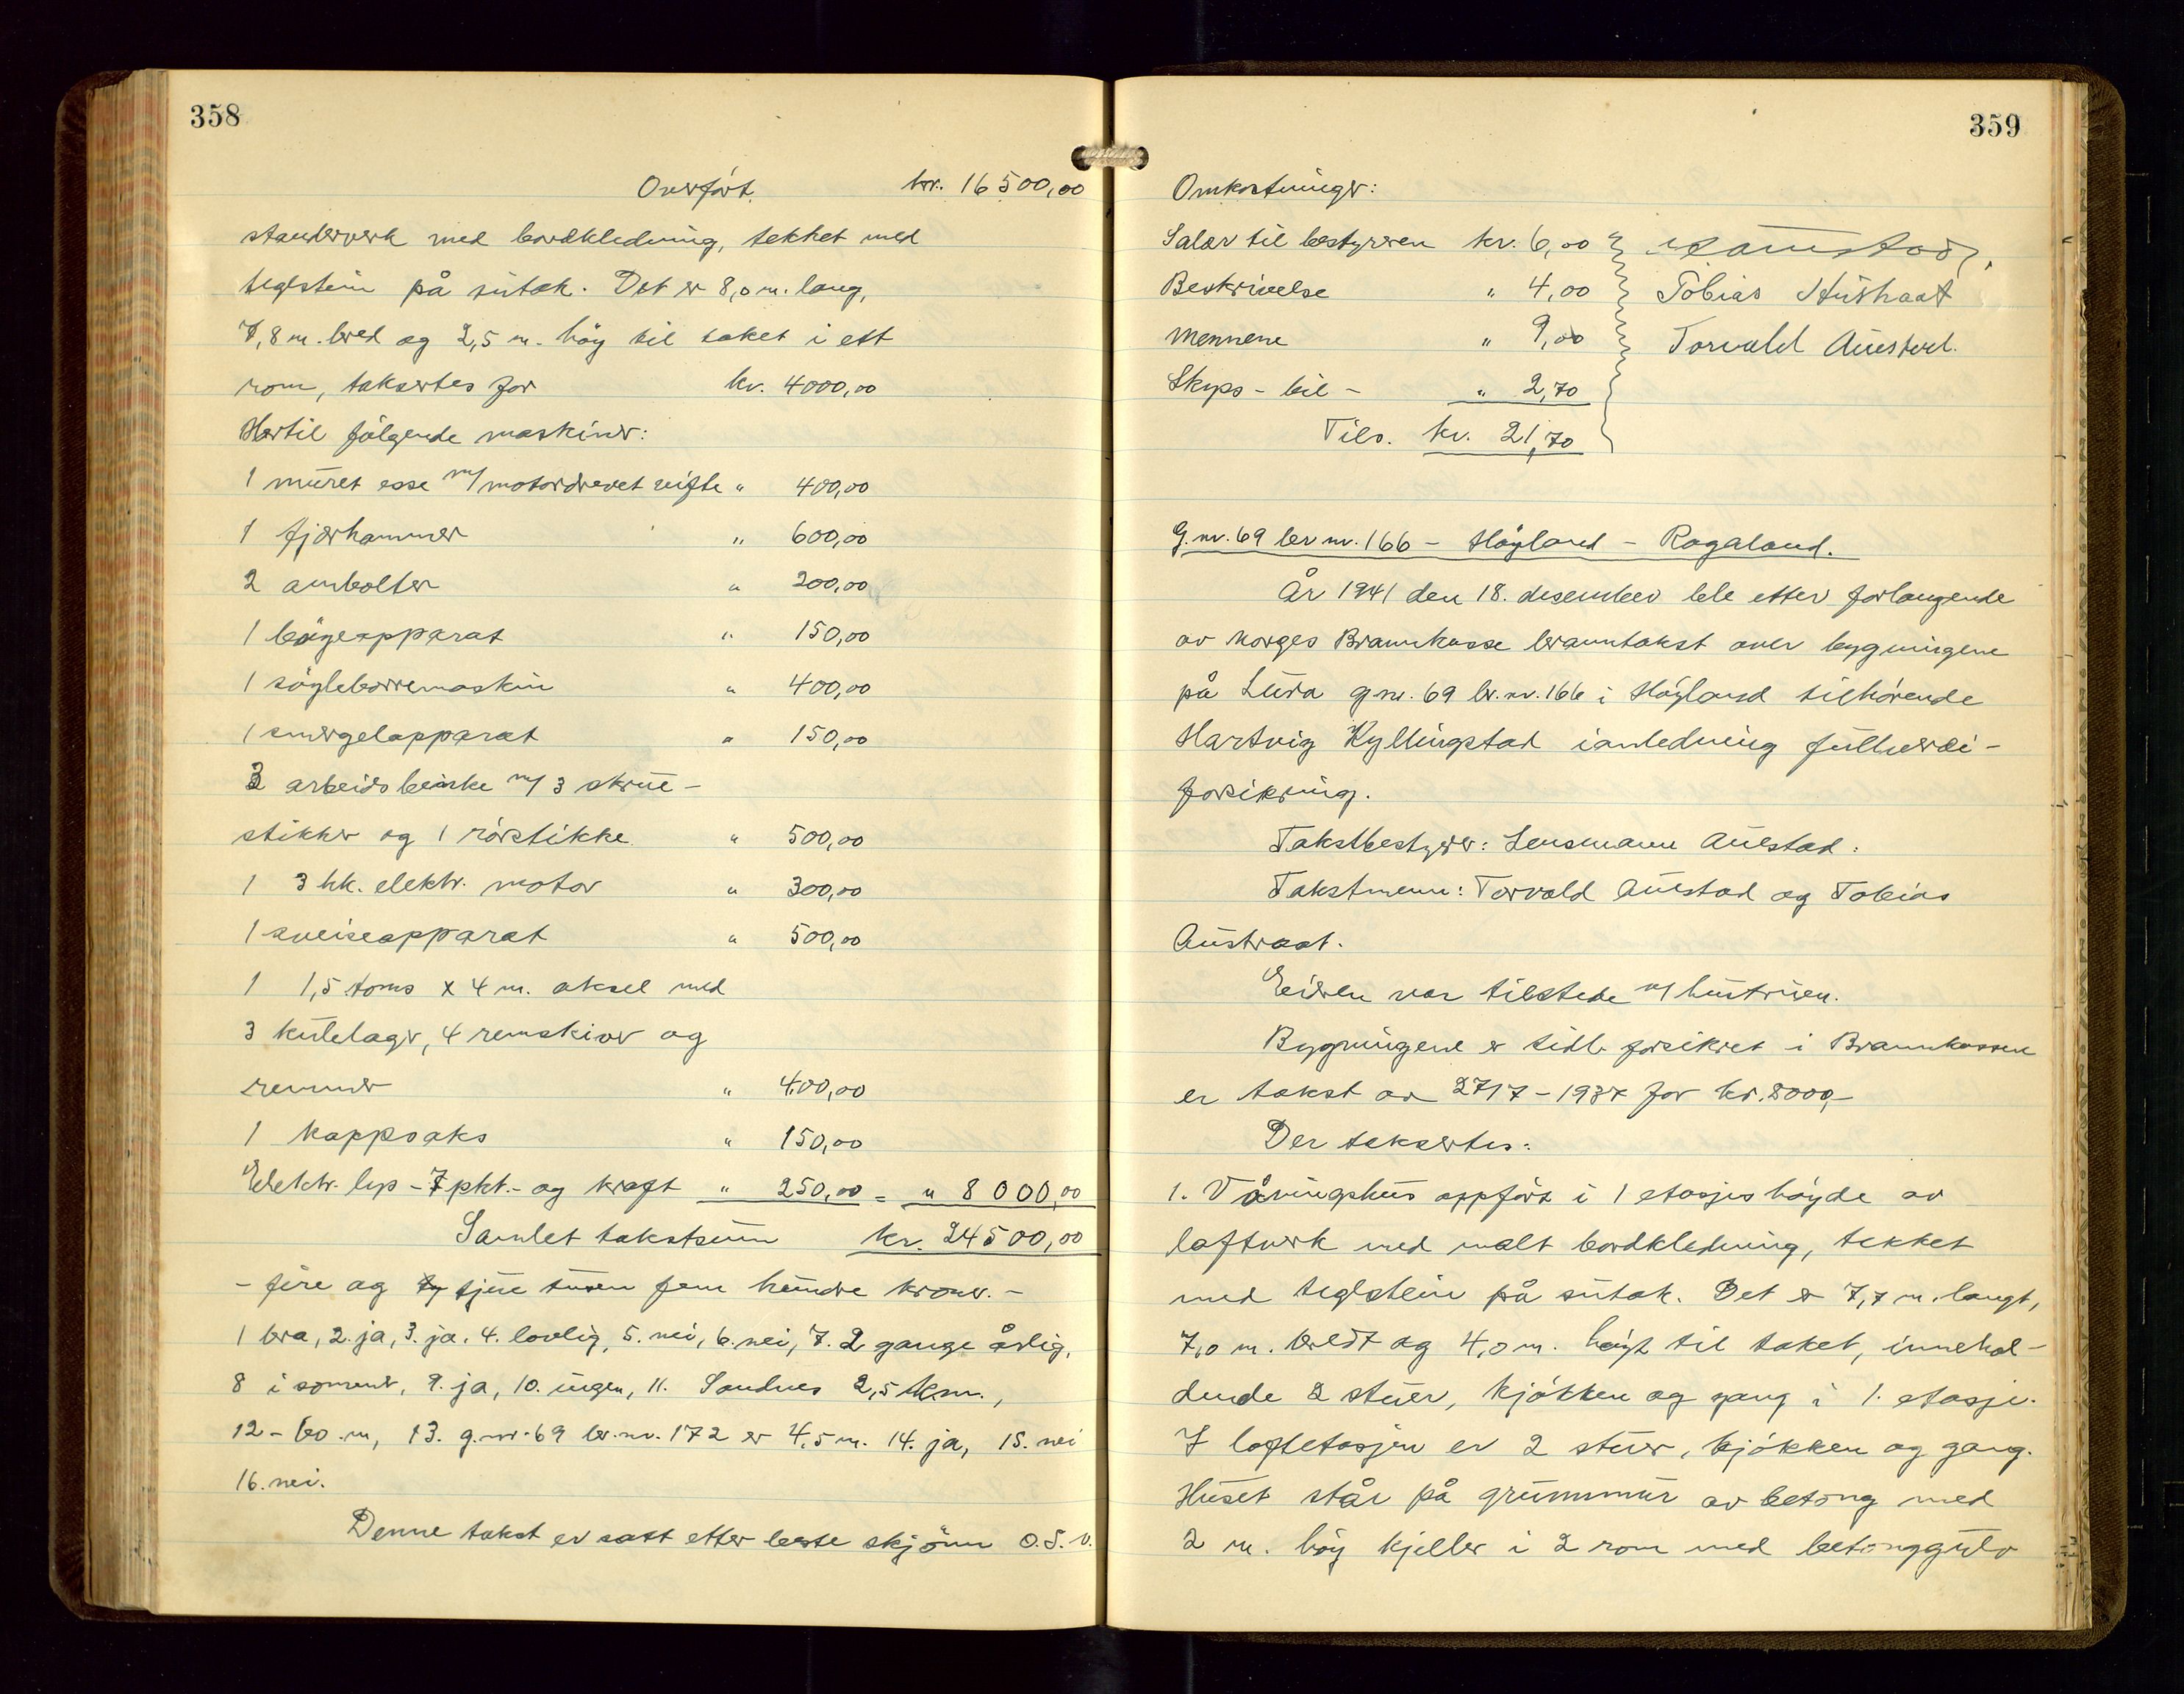 358
Overført. kr. 16500,00
standerverk med bordkledning, tekket med
teglstein på sutak. Det er 8,0 m. lang,
7,8 m. bred og 2,5 m. høy til taket i ett
rom, taksertes for kr. 4000,00
Hertil følgende maskiner:
1 muret esse m/motordrevet vifte " 400,00
1 fjærhammer " 600,00
2 ambolter " 200,00
1 bøyeapparat " 150,00
1 søyleborremaskin " 400,00
1 smergelapparat " 150,00
3 arbeidsbenke m/ 3 skrue-
stikker og 1 rørstikke " 500,00
1 3 hk. elektr. motor " 300,00
1 sveiseapparat " 500,00
1 1,5 toms x 4 m. aksel med
3 kulelager, 4 remskiver og
remmer " 400,00
1 kappsaks " 150,00
Elektr. lys - 7 pkt. - og kraft " 250,00 = " 8000,00
Samlet takstsum kr. 24500,00
- fire og tjue tusen fem hundre kroner. -
1 bra, 2. ja, 3. ja. 4. lovlig, 5. nei, 6. nei, 7. 2 gange årlig,
8 i sement, 9. ja, 10. ingen, 11. Sandnes 2,5 km.,
12 - 60 m, 13. g.nr. 69 br.nr. 172 er 4,5 m. 14. ja, 15. nei
16. nei.
Denne takst er satt etter beste skjønn o.s.v.
359
Omkostninger:
Salær til bestyreren kr. 6,00 Aaustad.
Beskrivelse " 4,00 Tobias Austraat
Mennene " 9,00 Torvald Auestad.
Skyss - bil - " 2,70
Tils. kr. 21,70
G.nr. 69 br nr. 166 - Høyland - Rogaland.
År 1941 den 18. desember ble etter forlangende
av Norges Brannkasse branntakst over bygningene
på Lura g.nr. 69 br.nr. 166 i Høyland tilhørende
Hartvig Kyllingstad i anledning fullverdi-
forsikring.
Takstbestyrer: Lensmann Auestad.
Takstmenn: Torvald Auestad og Tobias
Austraat.
Eieren var tilstede m/ hustruen.
Bygningene er tidl. forsikret i Brannkassen
er takst av 27/7 - 1937 for kr. 8000,-
Der taksertes:
1. Våningshus oppført i 1 etasjes høyde av
laftverk med malt bordkledning, tekket
med teglstein på sutak. Det er 7,7 m. langt,
7,0 m. bredt og 4,0 m. høyt til taket, innehol-
dende 2 stuer, kjøkken og gang i 1. etasje.
I loftetasjen er 2 stuer, kjøkken og gang.
Huset står på grunnmur av betong med
2 m. høy kjeller i 2 rom med betonggulv